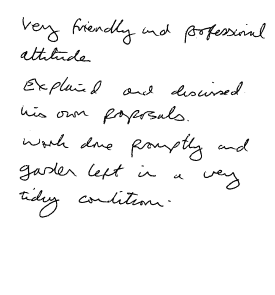 Very friendly and professional
attitude
Explained and discussed
his own proposals.
Work done promptly and
garden left in a very
tidy condition.